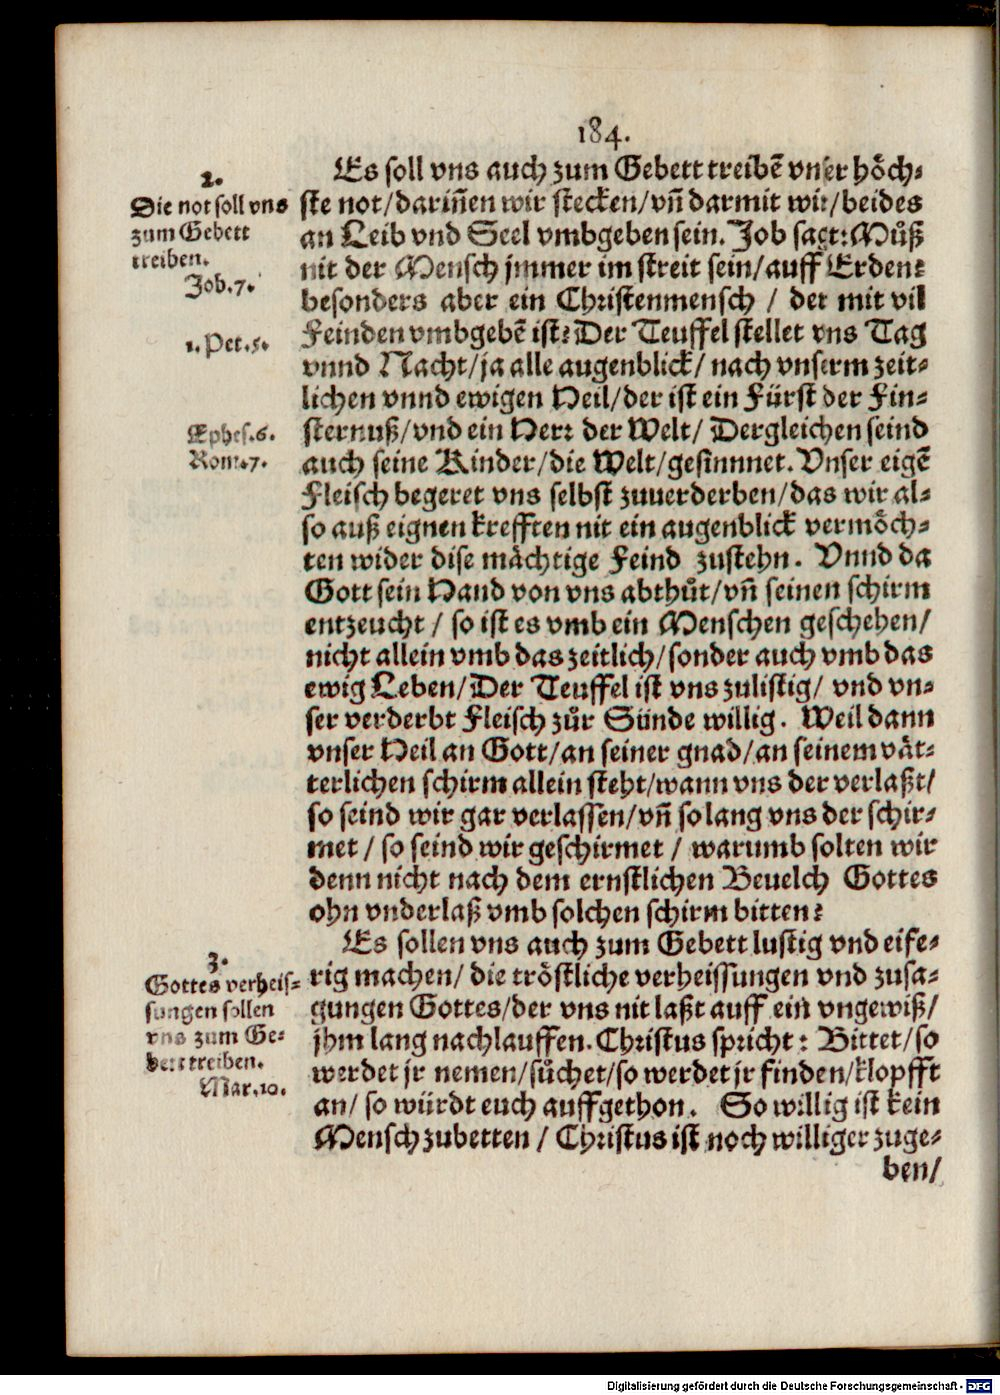 184.
Es soll vns auch zum Gebett treibẽ vnser hoͤch⸗
ste not/darin̄en wir stecken/vn̄ darmit wir/beides
an Leib vnd Seel vmbgeben sein. Job sagt: Muͤß
nit der Mensch jmmer im streit sein/auff Erden?
besonders aber ein Christenmensch / der mit vil
Feinden vmbgebẽ ist? Der Teuffel stellet vns Tag
vnnd Nacht/ja alle augenblick/ nach vnserm zeit⸗
lichen vnnd ewigen Heil/der ist ein Fürst der Fin⸗
sternuß/vnd ein Herr der Welt/ Dergleichen seind
auch seine Kinder/die Welt/gesinnnet. Vnser eigẽ
Fleisch begeret vns selbst zuuerderben/das wir al⸗
so auß eignen krefften nit ein augenblick vermoͤch⸗
ten wider dise maͤchtige Feind zustehn. Vnnd da
Gott sein Hand von vns abthuͦt/vn̄ seinen schirm
entzeucht / so ist es vmb ein Menschen geschehen/
nicht allein vmb das zeitlich/sonder auch vmb das
ewig Leben/Der Teuffel ist vns zulistig/ vnd vn⸗
ser verderbt Fleisch zuͦr Sünde willig. Weil dann
vnser Heil an Gott/an seiner gnad/an seinem vaͤt⸗
terlichen schirm allein steht/wann vns der verlaßt/
so seind wir gar verlassen/vn̄ so lang vns der schir⸗
met / so seind wir geschirmet / warumb solten wir
denn nicht nach dem ernstlichen Beuelch Gottes
ohn vnderlaß vmb solchen schirm bitten?
Es sollen vns auch zum Gebett lustig vnd eife⸗
rig machen/ die troͤstliche verheissungen vnd zusa⸗
gungen Gottes/der vns nit laßt auff ein vngewiß/
jhm lang nachlauffen. Christus spricht: Bittet/so
werdet jr nemen/suͤchet/so werdet jr finden/klopfft
an/ so würdt euch auffgethon. So willig ist kein
Mensch zubetten / Christus ist noch williger zuge⸗
ben/
2.
Die not soll vns
zum Gebett
treiben.
Job.7.
1. Pet.5.
Ephes.6.
Rom.7.
3.
Gottes verheis⸗
sungen sollen
vns zum Ge⸗
bett treiben.
Mar.10.
Digitalisierung gefördert durch die Deutsche Forschungsgemeinschaft - DFG